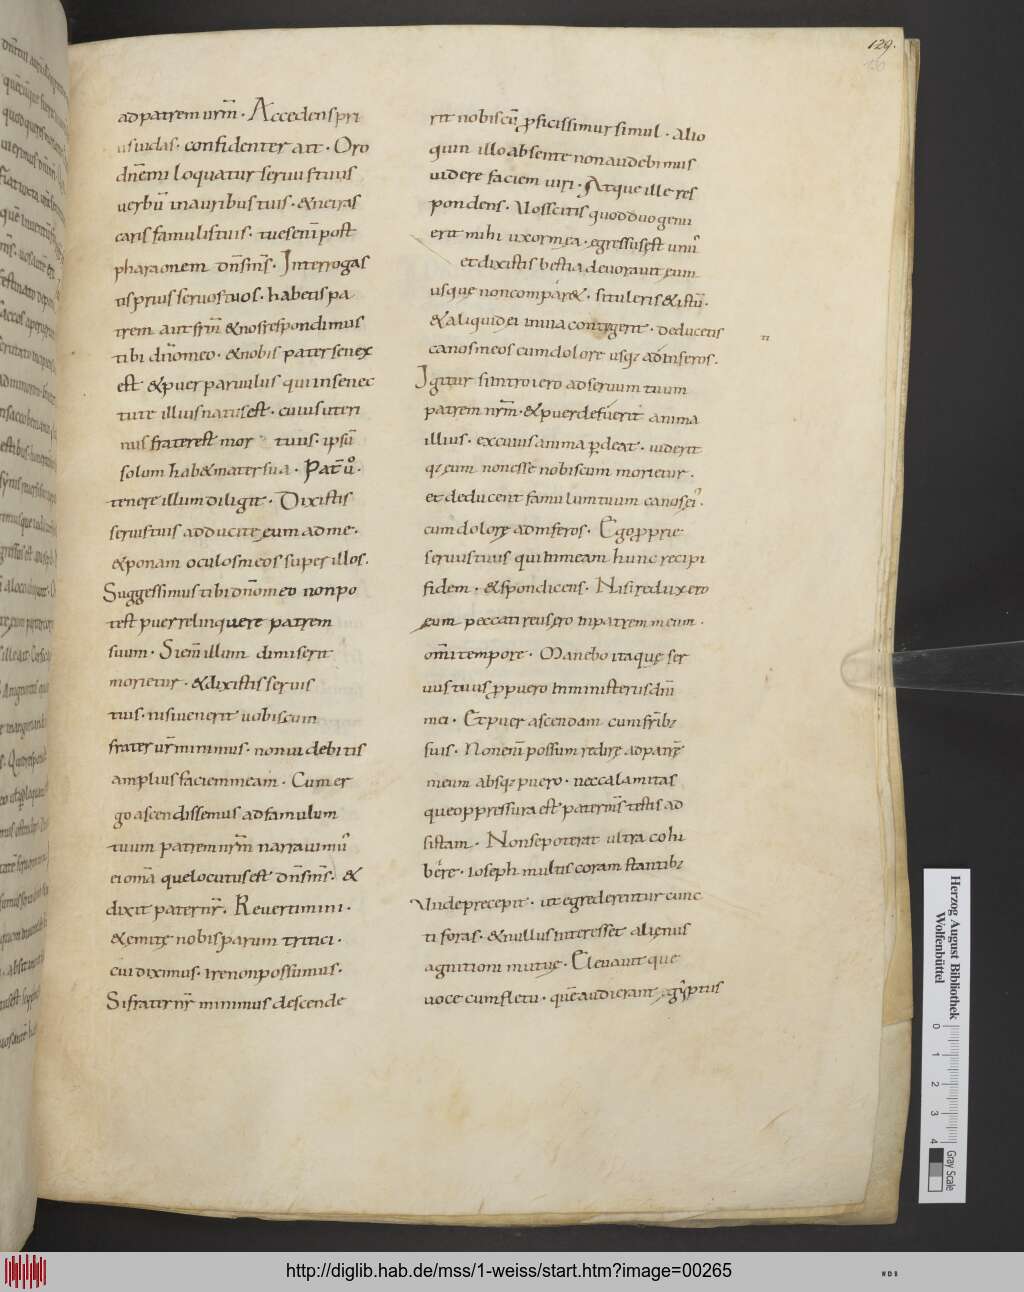 129.
ad patrem urm̅. Accedens pri
us iudas. confidenter ait. Oro
dn̅e mi loquatur seruus tuus
uerbu̅ in auribus tuis. & ne iras
caris famulis tuis. tu es eni̅ post
pharaonem dn̅s m̅s. Interrogas
tis prius seruos tuos. habetis pa
trem aut frm̅ & nos respondimus
tibi dn̅o meo. & nobis pater senex
est & puer paruulus qui in senec
tute illius natus est. cuius uteri
nus frater est mor tuus. ipsu̅
solum hab& mater sua. Pat̅ ů.
tenere illum diligit. Dixistis
seruis tuis adducite eum ad me.
& ponam oculos meos super illos.
Suggessimus tibi dn̅o meo non po
test puer relinquere patrem
suum. Si eni̅ illum dimiserit
morietur. & dixistis seruis
tuis. nisi uenerit uobiscum
frater ur̅ minimus. non uidebitis
amplius faciem meam. Cum er
go ascendissemus ad famulum
tuum patrem nrm̅ narrauimꝰ
ei om̅a que locutus est dn̅s m̅s. &
dixit pater nr̅. Reuertimini.
& emite nobis parum tritici.
cui diximus. ire non possumus.
Si frater nr̅ minimus descende
rit nobiscu̅ ꝓficissimur simul. alio
quin illo absente non audebimus
uidere faciem uiri. Atque ille res
pondens. Uos scitis quod duo genu
erit mihi uxor mea. egressus est unꝰ
et dixistis bestia deuorauit eum
usque non compar&. si tuleris & istu̅.
& aliquid ei in uia contigerit. deducetis
canos meos cum dolore usqꝫ ad inferos.
Igitur si introiero ad seruum tuum
patrem nrm̅. & puer defuerit anima
illius. ex cuius anima ꝑdeat. uiderit
qꝫ eum non esse nobiscum morietur.
et deducent famulum tuum canos eiꝰ.
cum dolore ad inferos. Ego ꝓprie
seruus tuus qui in meam hunc recipi
fidem. & spondi cens. Nisi reduxero
eum peccati reus ero in patrem meum.
om̅i tempore. Manebo itaque ser
uus tuus ꝓ puero in ministerius dn̅i
mei. Et puer ascendam cum frib̅ꝫ
suis. Non eni̅ possum redire ad patre̅
meum absqꝫ puero. ne calamitas
que oppressura est patrem̅ testis ad
sistam. Non se poterat ultra cohi
bere. ioseph multis coram stantibꝫ
Unde precepit. ut egrederentur cunc
ti foras. & nullus interesset alienus
agnitioni mutue. Eleuauit que
uoce cum fletu. que̅ audierant egyptus
Herzog August Bibliothek
Wolfenbüttel
0 1 2 3 4
Gray Scale
http://diglib.hab.de/mss/1-weiss/start.htm?image=00265